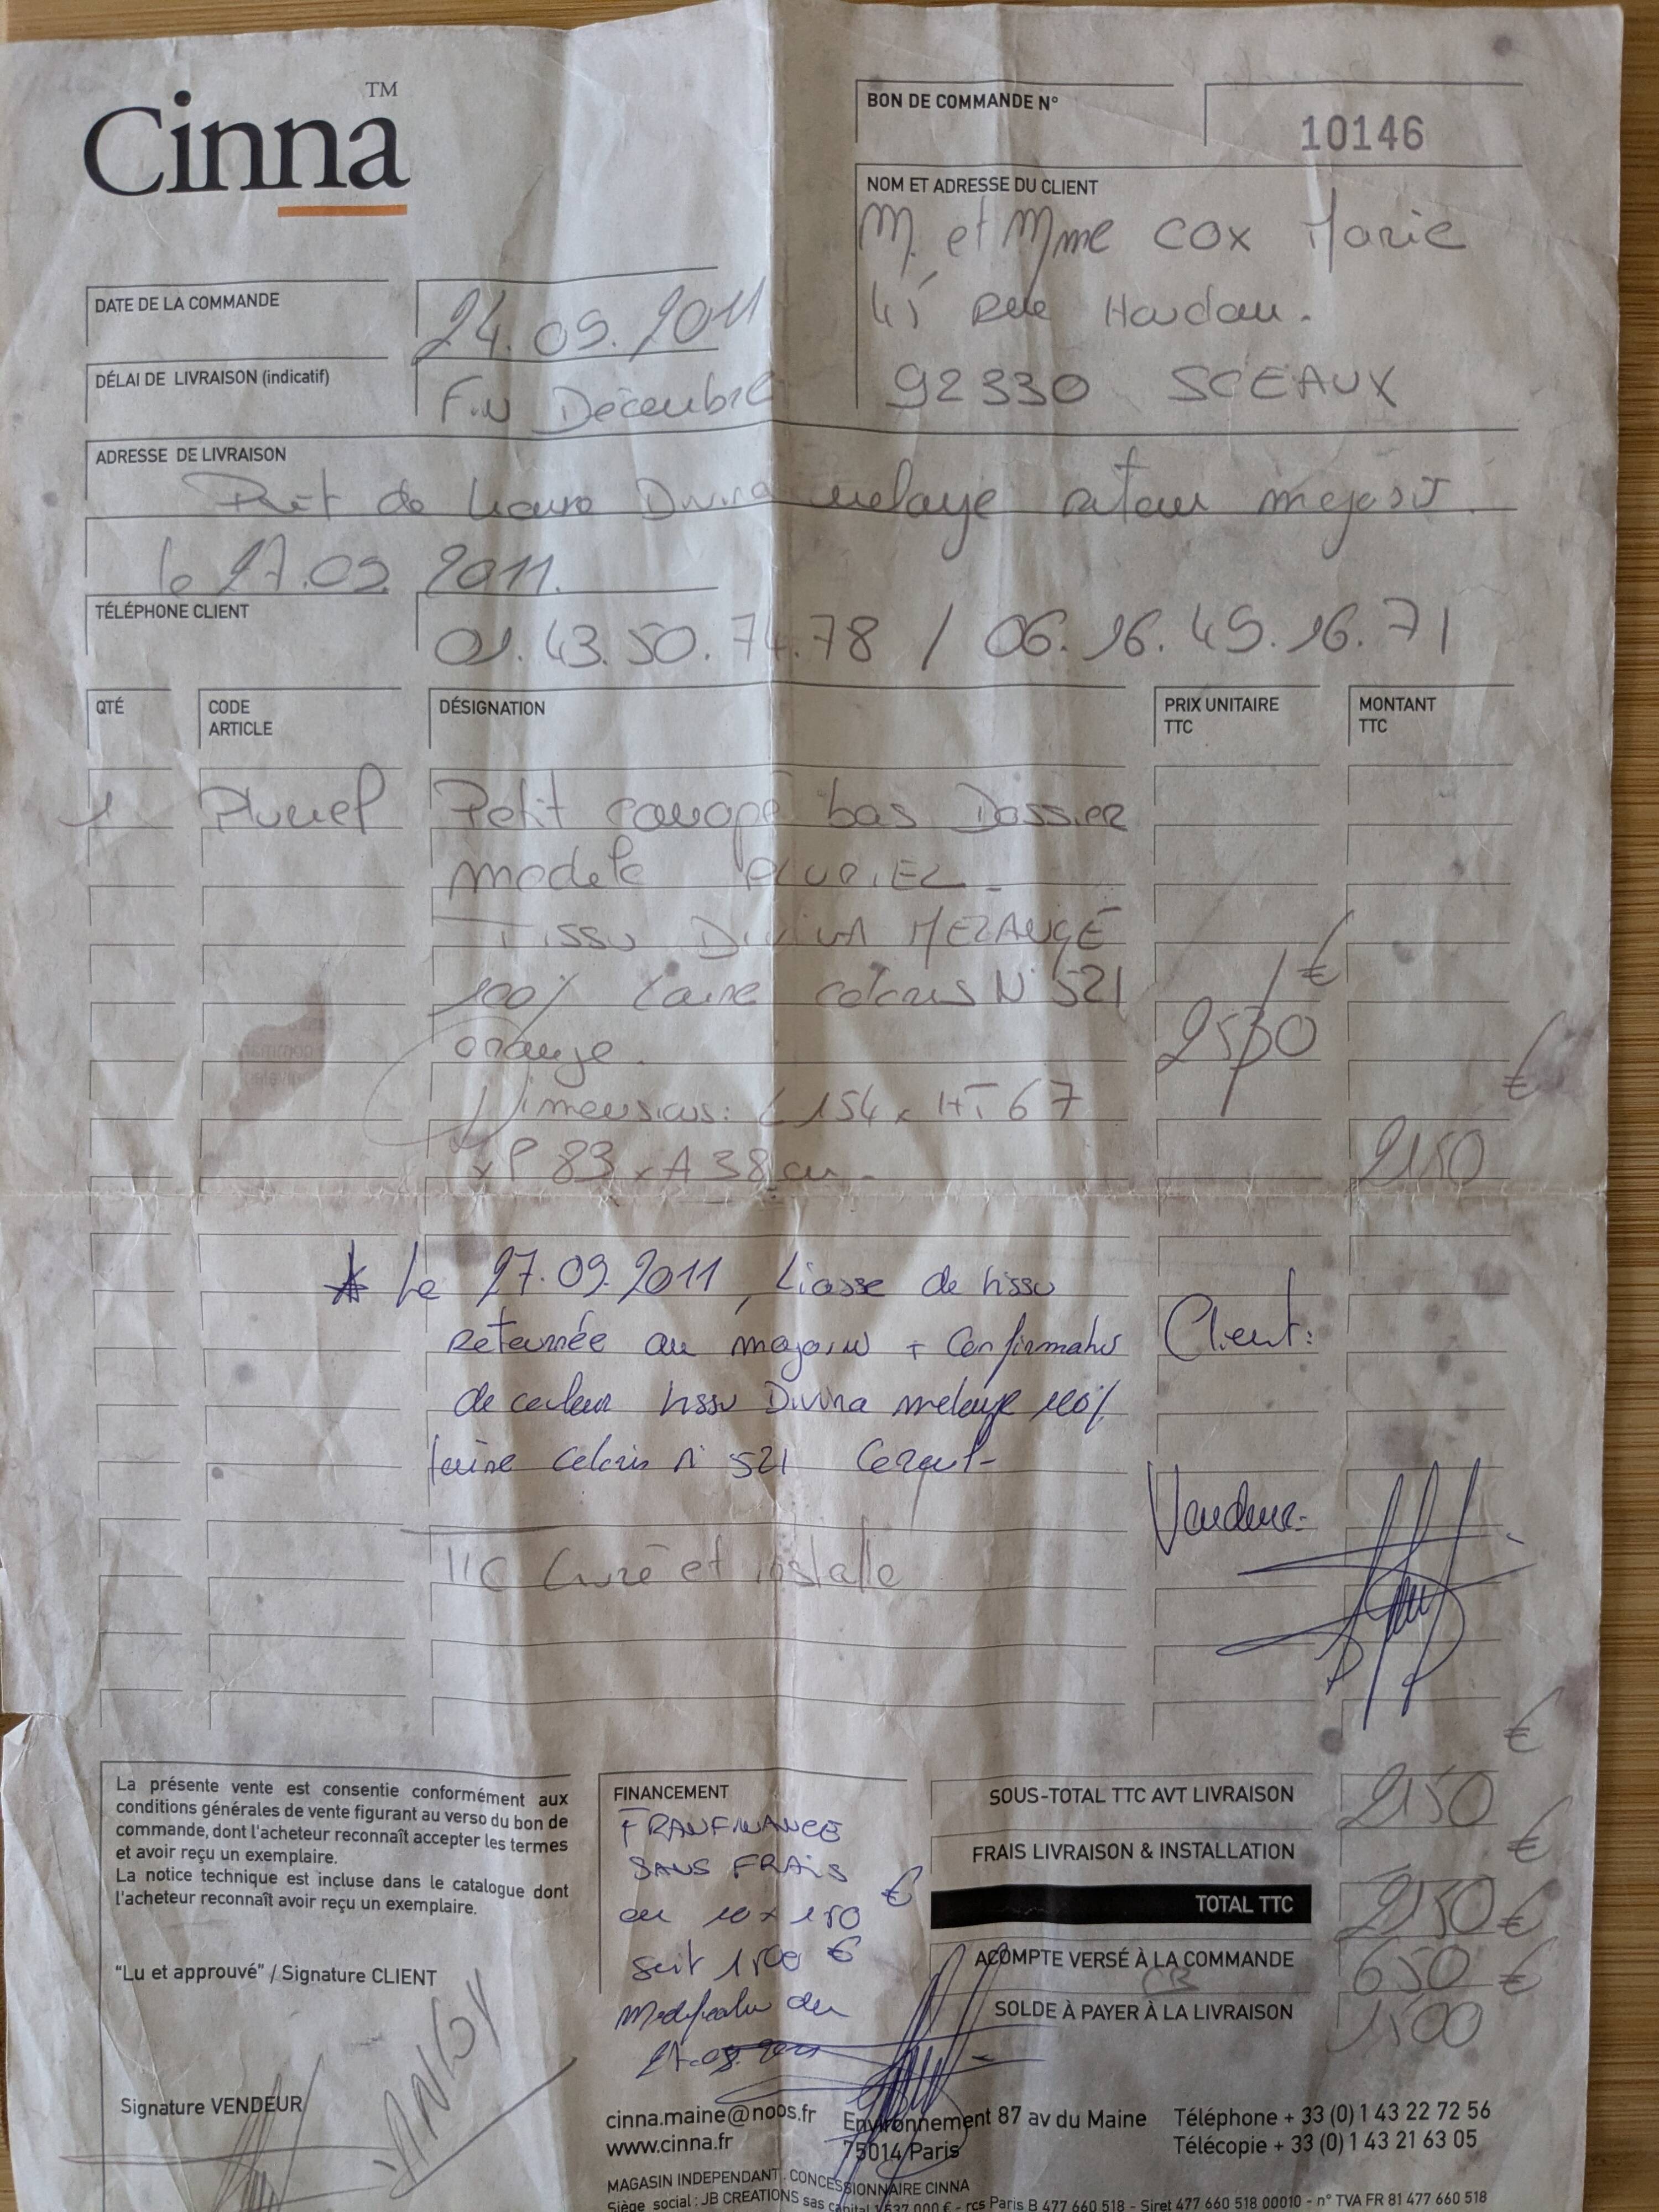 Cinna™
BON DE COMMANDE N°
10146
NOM ET ADRESSE DU CLIENT
M. et Mme COX Marie
Rue Houdan.
92330 SCEAUX
DATE DE LA COMMANDE
24.09.2011
DÉLAI DE LIVRAISON (indicatif)
Fin Décembre
ADRESSE DE LIVRAISON
Prêt de liasse Divina melange retour magasin
le 27.09.2011.
TÉLÉPHONE CLIENT
01.43.50.74.78 / 06.16.49.16.71
QTÉ
CODE ARTICLE
DÉSIGNATION
PRIX UNITAIRE TTC
MONTANT TTC
1 Pluriel Petit canapé bas Dossier
modele PLURIEL -
Tissu DIVINA MELANGÉ
100% Laine coloris N° 521 €
orange. 2530
Dimensions: L 154 x HT 67 €
x P 83 x A 38 cm - 2150
* Le 27.09.2011, liasse de tissu
Retournée au magasin + Confirmation Client:
de couleur tissu Divina melange 100%
laine coloris N° 521 Corail-
Vendeur-
TTC Livré et installe
La présente vente est consentie conformément aux
conditions générales de vente figurant au verso du bon de
commande, dont l'acheteur reconnaît accepter les termes
et avoir reçu un exemplaire.
La notice technique est incluse dans le catalogue dont
l'acheteur reconnaît avoir reçu un exemplaire.
"Lu et approuvé" / Signature CLIENT
Signature VENDEUR
FINANCEMENT
FRANFINANCE
SANS FRAIS
en 10 x 150 €
soit 1500 €
Modification du
27.09.2011
€
SOUS-TOTAL TTC AVT LIVRAISON 2150
FRAIS LIVRAISON & INSTALLATION €
TOTAL TTC 2150 €
ACOMPTE VERSÉ À LA COMMANDE 650 €
CB
SOLDE À PAYER À LA LIVRAISON 1500
cinna.maine@noos.fr Environnement 87 av du Maine Téléphone + 33 (0) 1 43 22 72 56
www.cinna.fr 75014 Paris Télécopie + 33 (0) 1 43 21 63 05
MAGASIN INDEPENDANT. CONCESSIONNAIRE CINNA
Siège social : JB CREATIONS sas capital 1 537 000 € - rcs Paris B 477 660 518 - Siret 477 660 518 00010 - n° TVA FR 81 477 660 518